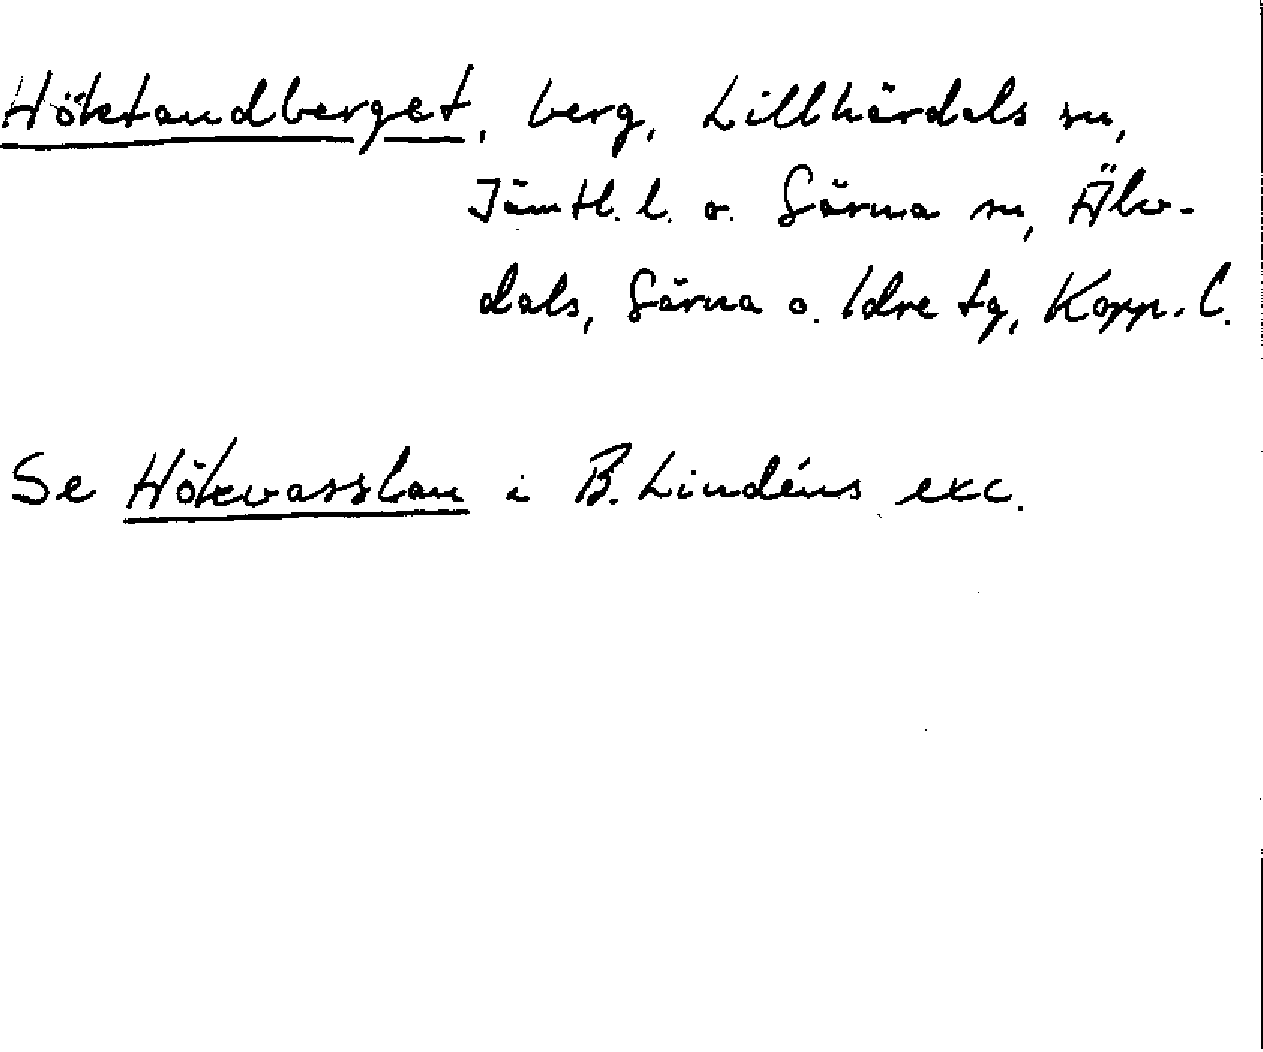 Höktandberget, berg, Lillhärdals sn,
Jämtl. l. o. Särna sn, Älv-
dals, Särna o. Idre tg, Kopp. l.
Se Hökvasslan i B. Lindéns exc.